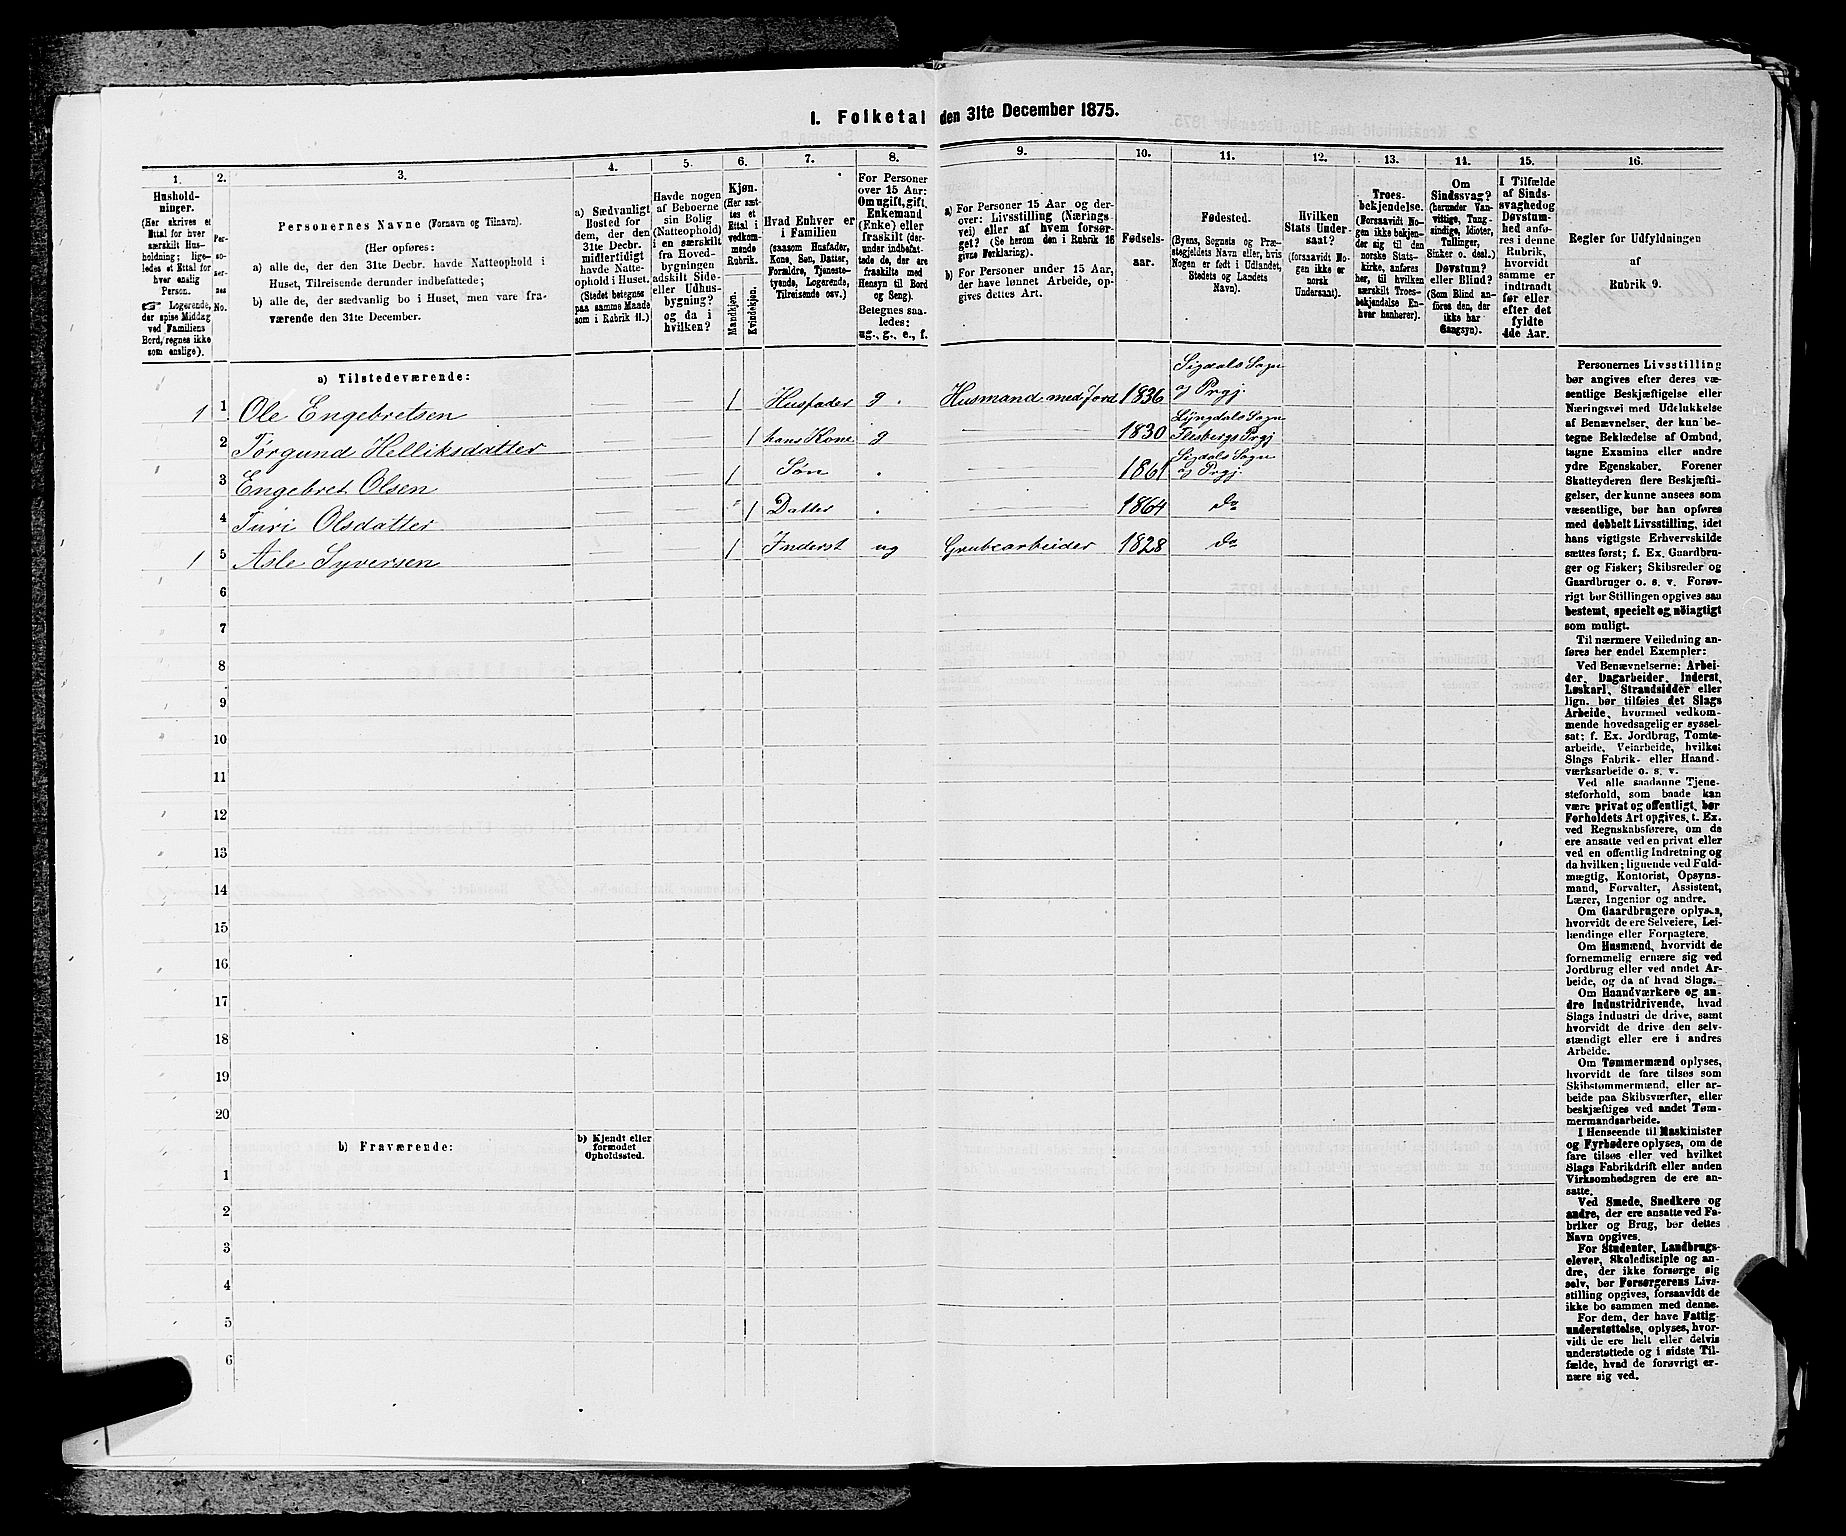 I. Folketal den 31te December 1875.
1.
2.
3.
4.
5.
6.
7.
8.
9.
10.
11.
12.
13.
14.
15.
16.
Hushold-
ninger.
(Her skrives et
Ettal for hver
særskilt Hus-
holdning; lige-
ledes et Ettal for
hver enslig
Person.
Logerende,
der spise Middag
ved Familiens
Bord, regnes ikke
som enslige).
Per-
so-
ner-
nes
No.
Personernes Navne (Fornavn og Tilnavn).
(Her opføres:
a) alle de, der den 31te Decbr. havde Natteophold i
Huset, Tilreisende derunder indbefattede;
b) alle de, der sædvanlig bo i Huset, men vare fra-
værende den 31te December.
a) Sædvanligt
Bosted for
dem, der den
31te Decbr.
midlertidigt
havde Natte-
ophold i Huset.
(Stedet betegnes
paa samme Maade
som i Rubrik 11.)
Havde nogen
af Beboerne
sin Bolig
(Natteophold)
i en særskilt
fra Hoved-
bygningen
adskilt Side-
eller Udhus-
bygning?
og da i
hvilken?
Kjøn.
(Her sæt-
tes et
Ettal i
vedkom-
mende
Rubrik.
Mandkjøn.
Kvindekjøn.
Hvad Enhver er
i Familien
(saasom Husfader,
Kone, Søn, Datter,
Forældre, Tjeneste-
tyende, Logerende,
Tilreisende osv.)
For Personer
over 15 Aar:
Om ugift, gift,
Enkemand
(Enke) eller
fraskilt (der-
under indbefat-
tede de, der ere
fraskilte med
Hensyn til Bord
og Seng).
Betegnes saa-
ledes:
ug., g., e., f.
a) For Personer 15 Aar og der-
over: Livsstilling (Nærings-
vei) eller af hvem forsør-
get? (Se herom den i Rubrik 16
givne Forklaring).
b) For Personer under 15 Aar,
der have lønnet Arbeide, op-
gives dettes Art.
Fødsels-
aar.
Fødested.
(Byens, Sognets og Præ-
stegjeldets Navn eller, hvis
Nogen er født i Udlandet,
Stedets og Landets
Navn).
Hvilken
Stats Under-
saat?
(forsaavidt No-
gen ikke er
norsk
Undersaat).
Troes-
bekjendelse.
(Forsaavidt No-
gen ikke bekjen-
der sig til den
norske Stats-
kirke, anføres
her, til hvilken
særskilt Troes-
bekjendelse En-
hver henhører).
Om
Sindssvag?
(herunder Van-
vittige, Tung-
sindige, Idioter,
Tullinger,
Sinker o. desl.)
Døvstum?
eller Blind?
(Som Blind an-
føres den, der
ikke har
Gangsyn).
I Tilfælde
af Sinds-
svaghed og
Døvstum-
hed anfø-
res i denne
Rubrik,
hvorvidt
samme er
indtraadt
før eller
efter det
fyldte
4de Aar.
Regler for Udfyldningen
af
Rubrik 9.
a) Tilstedeværende:
1 1 Ole Engebretsen — — 1 Husfader g. Husmand med Jord 1836 Sigdals Sogn
og Prgj.
2 Tørgund Helliksdatter — — 1 hans Kone g — 1830 Lyngdals Sogn
Flesbergs Prgj
3 Engebret Olsen — — 1 Søn . — 1861 Sigdals Sogn
og Prgj.
4 Turi Olsdatter — — " 1 Datter . — 1864 do
1 5 Asle Syversen — — 1 Inderst ug Grubearbeider 1828 do
6
7
8
9
10
11
12
13
14
15
16
17
18
19
20
b) Fraværende:
b) Kjendt eller
formodet
Opholdssted.
1
2
3
4
5
6
Personernes Livsstilling
bør angives efter deres væ-
sentlige Beskjæftigelse eller
Næringsvei med Udelukkelse
af Benævnelser, der kun be-
tegne Beklædelse af Ombud,
tagne Examina eller andre
ydre Egenskaber. Forener
Skatteyderen flere Beskjæfti-
gelser, der kunne ansees som
væsentlige, bør han opføres
med dobbelt Livsstilling, idet
hans vigtigste Erhvervskilde
sættes først; f. Ex. Gaardbru-
ger og Fisker; Skibsreder og
Gaardbruger o. s. v. Forøv-
rigt bør Stillingen opgives saa
bestemt, specielt og nøiagtigt
som muligt.
Til nærmere Veiledning an-
føres her endel Exempler:
Ved Benævnelserne: Arbei-
der, Dagarbeider, Inderst,
Løskarl, Strandsidder eller
lign. bør tilføies det Slags
Arbeide, hvormed vedkom-
mende hovedsagelig er syssel-
sat; f. Ex. Jordbrug, Tomte-
arbeide, Veiarbeide, hvilket
Slags Fabrik- eller Haand-
værksarbeide o. s. v.
Ved alle saadanne Tjene-
steforhold, som baade kan
være privat og offentligt, bør
Forholdets Art opgives, t. Ex.
ved Regnskabsførere, om de
ere ansatte ved en privat eller
ved en offentlig Indretning og
da hvilken; lignende ved Fuld-
mægtig, Kontorist, Opsyns-
mand, Forvalter, Assistent,
Lærer, Ingeniør og andre.
Om Gaardbrugere oplyses,
hvorvidt de ere Selveiere, Lei-
lændinge eller Forpagtere.
Om Husmænd, hvorvidt de
fornemmelig ernære sig ved
Jordbrug eller ved andet Ar-
beide, og da af hvad Slags.
Om Haandværkere og an-
dre Industridrivende, hvad
Slags Industri de drive, samt
hvorvidt de drive den selv-
stændigt eller ere i andres
Arbeide.
Om Tømmermænd oplyses,
hvorvidt de fare tilsøs som
Skibstømmermænd, eller ar-
beide paa Skibsværfter, eller
beskjæftiges ved andet Tøm-
mermandsarbeide.
I Henseende til Maskinister
og Fyrbødere oplyses, om de
fare tilsøs eller ved hvilket
Slags Fabrikdrift eller anden
Virksomhedsgren de ere an-
satte.
Ved Smede, Snedkere og
andre, der ere ansatte ved Fa-
briker og Brug, bør dettes
Navn opgives.
For Studenter, Landbrugs-
elever, Skoledisciple og an-
dre, der ikke forsørge sig
selv, bør Forsørgerens Livs-
stilling opgives, forsaavidt de
ikke bo sammen med denne.
For dem, der have Fattig-
understøttelse, oplyses, hvor-
vidt de ere helt eller delvis
understøttede og i sidste Til-
fælde, hvad de forøvrigt er-
nære sig ved.